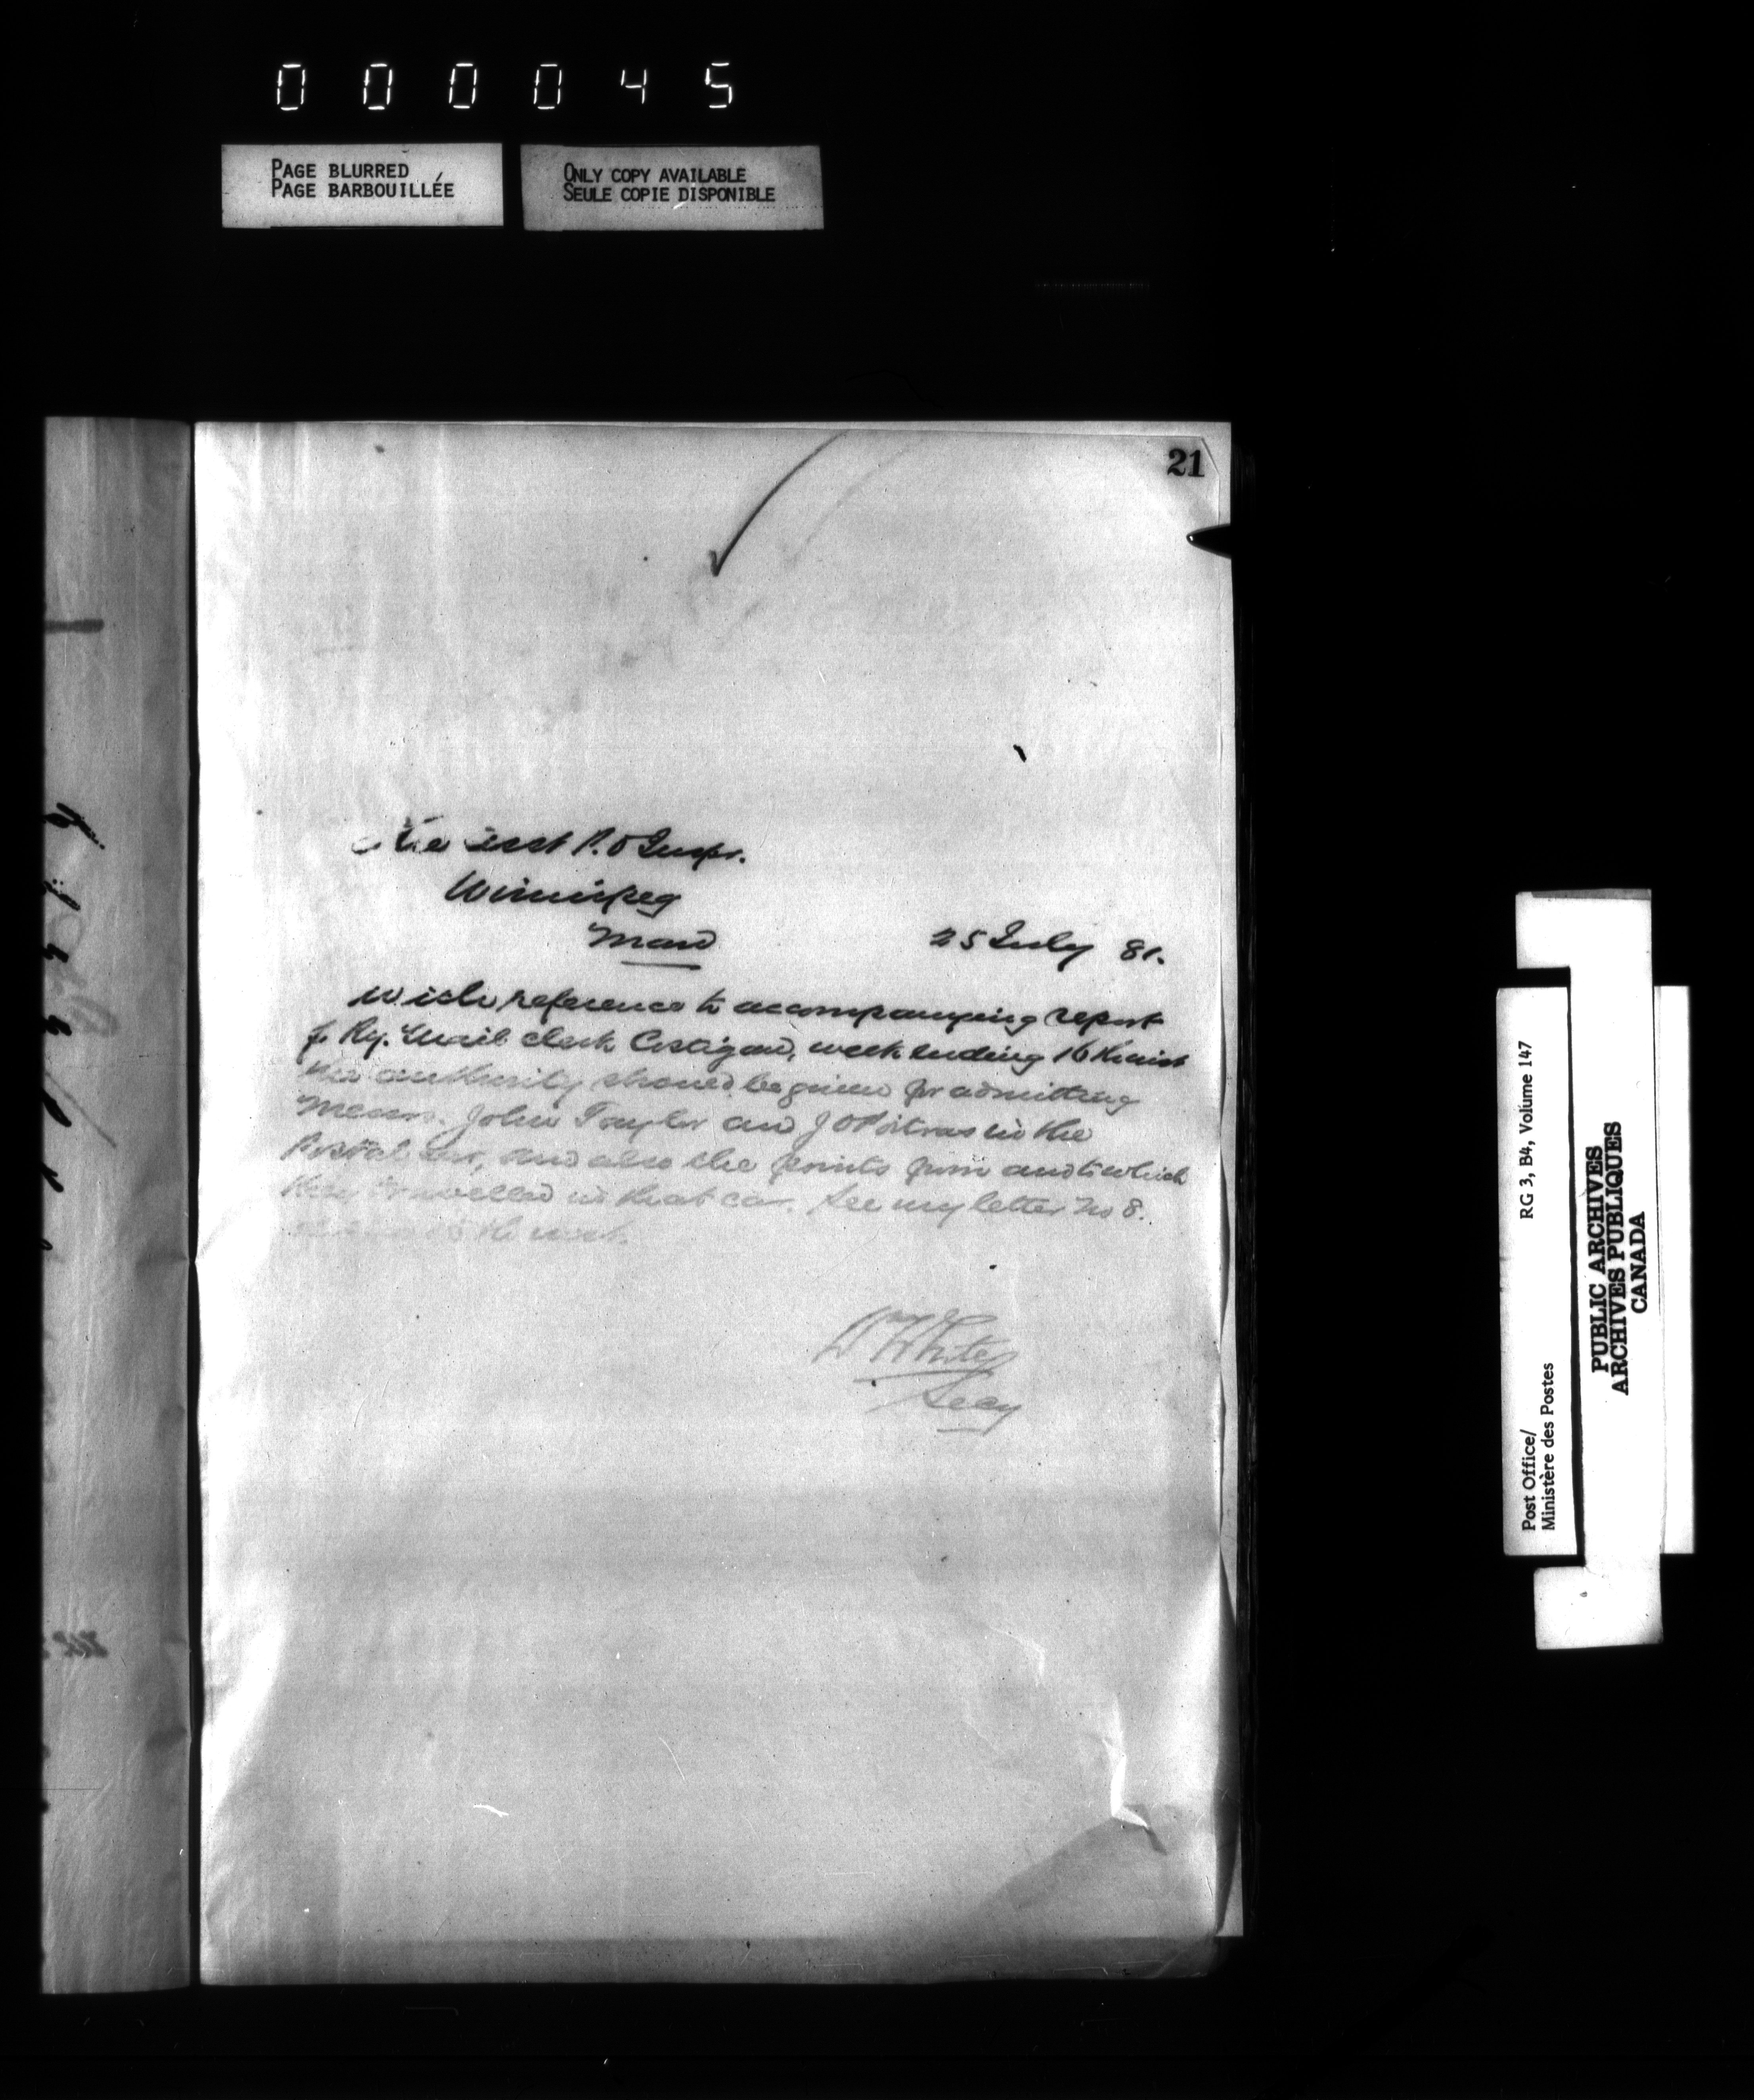 000045
PAGE BLURRED
PAGE BARBOUILLÉE
ONLY COPY AVAILABLE
SEULE COPIE DISPONIBLE
21
The Asst P.O Inspr.
Winnipeg
Man
25 July 81.
With reference to accompanying report
fr Ry. Mail Clerk Costigan, week ending 16th inst
the authority should be given for admitting
Messrs. John Taylor and J O Poitras in the
Postal Car, and also the points from and to which
they travelled in that car. See my letter No 8.
inst.
W White
Secy
Post Office/
Ministère des Postes
RG 3, B4, Volume 147
PUBLIC ARCHIVES
ARCHIVES PUBLIQUES
CANADA